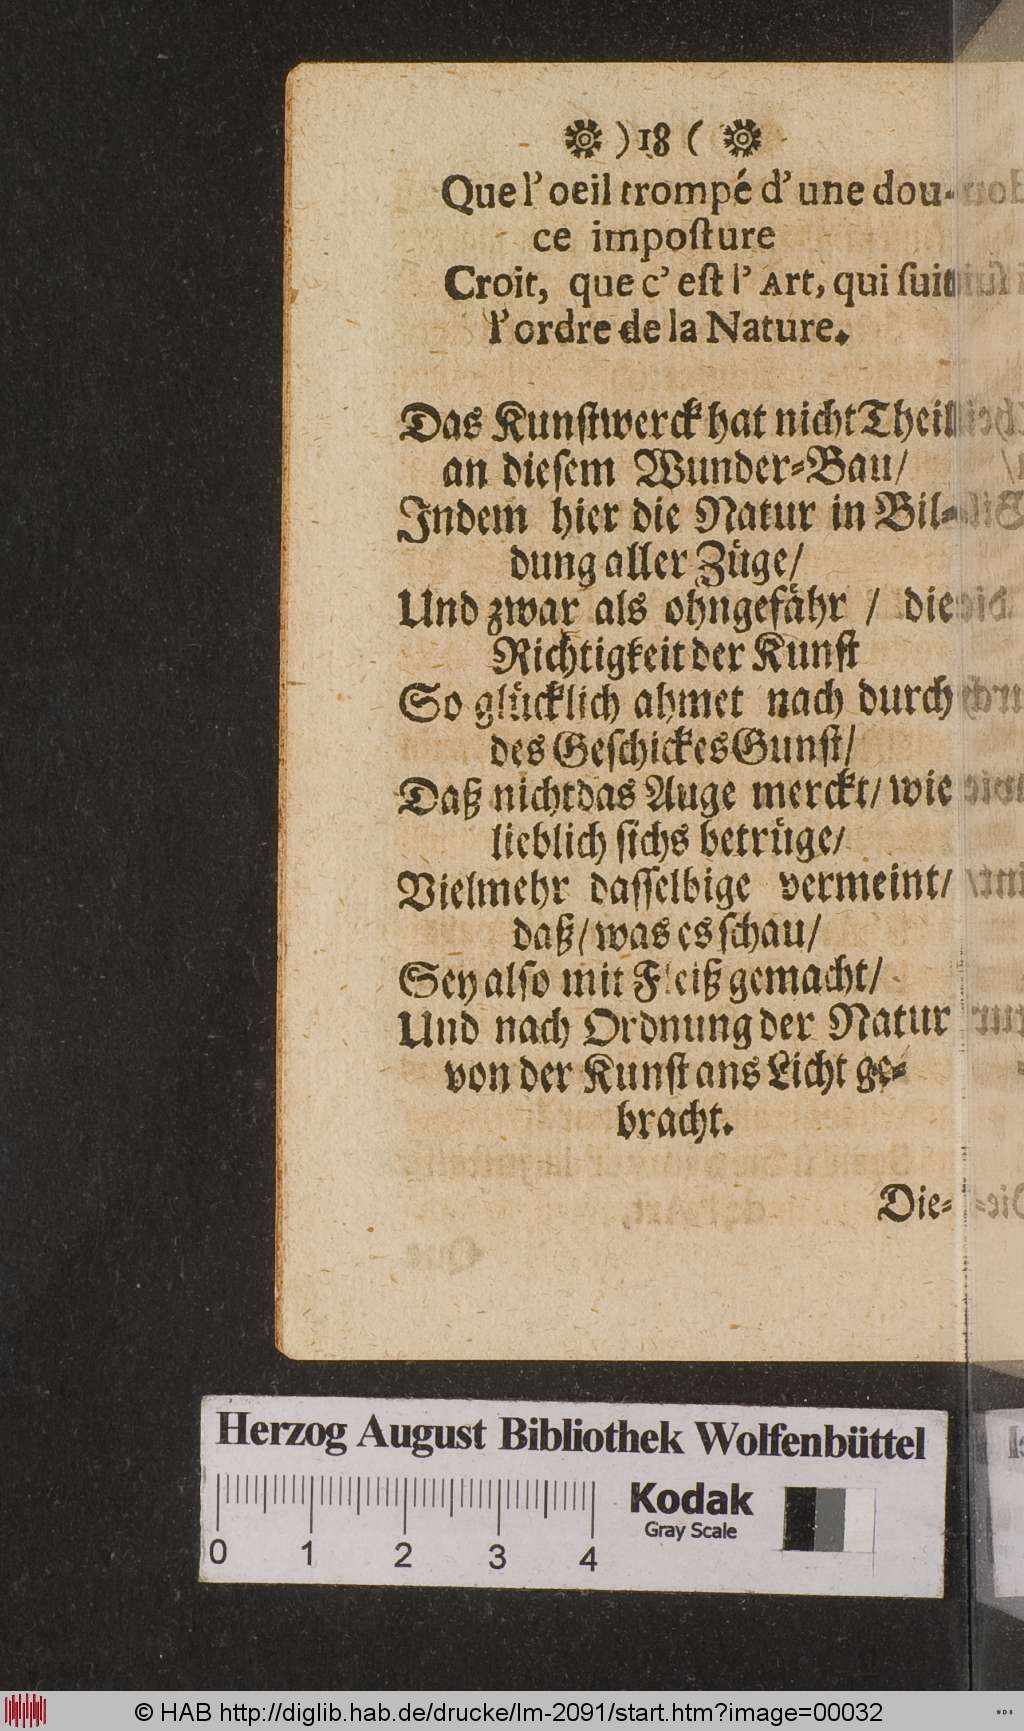 )18(
Que l' oeil trompé d' une dou-
ce imposture
Croit, que c' est l' Art, qui suit
l'ordre de la Nature.
Das Kunstwerck hat nicht Theil
an diesem Wunder-Bau/
Indem hier die Natur in Bil-
dung aller Züge/
Und zwar als ohngefähr / die
Richtigkeit der Kunst
So glücklich ahmet nach durch
des Geschickes Gunst/
Daß nicht das Auge merckt/ wie
lieblich sichs betrüge/
Vielmehr dasselbige vermeint/
daß/ was es schau/
Sey also mit Fleiß gemacht/
Und nach Ordnung der Natur
von der Kunst ans Licht ge-
bracht.
Die-
Herzog August Bibliothek Wolfenbüttel
Kodak
Gray Scale
0 1 2 3 4
© HAB http://diglib.hab.de/drucke/lm-2091/start.htm?image=00032